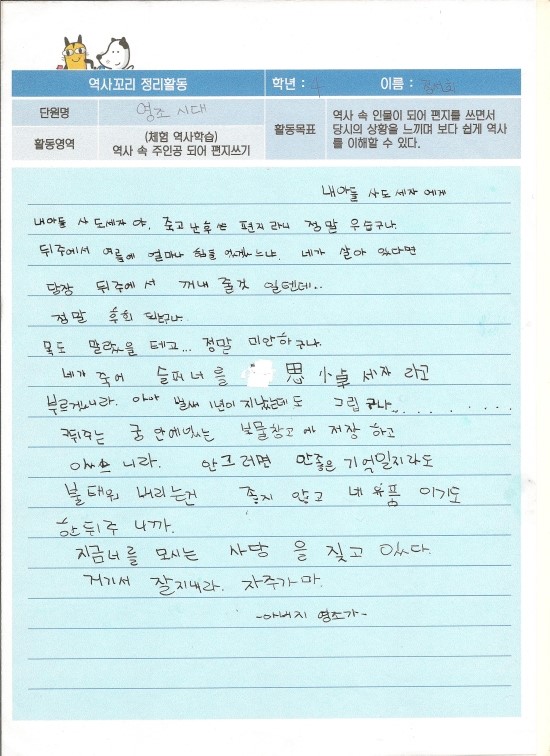 역사꼬리 정리활동 학년 : 4 이름 :
단원명 영조 시대 활동목표 역사 속 인물이 되어 편지를 쓰면서 당시의 상황을 느끼며 보다 쉽게 역사를 이해할 수 있다.
활동영역 (체험 역사학습) 역사 속 주인공 되어 편지쓰기
내아들 사도세자 에게
내아들 사도세자 야. 죽고 난후 쓴 편지 라니 정말 우습구나.
뒤주에서 여름에 얼마나 힘들 었겠느냐. 네가 살아 있다면
당장 뒤주에서 꺼내 줄것 일텐데..
정말 후회 되는구나.
목도 말랐을 테고... 정말 미안하구나.
네가 죽어 슬퍼 너를 思 小卓 세자 라고
부르겠느니라. 아아 벌써 1년이 지났는데도 그립구나. . . . . . . . .
뒤주는 궁 안에있는 보물창고 에 저장 하고
있느니라. 안그러면 안좋은 기억일지라도
불태워 버리는건 좋지 않고 네 유품 이기도
한 뒤주 니까.
지금너를 모시는 사당 을 짓고 있다.
거기서 잘지내라. 자주가마.
-아버지 영조가-